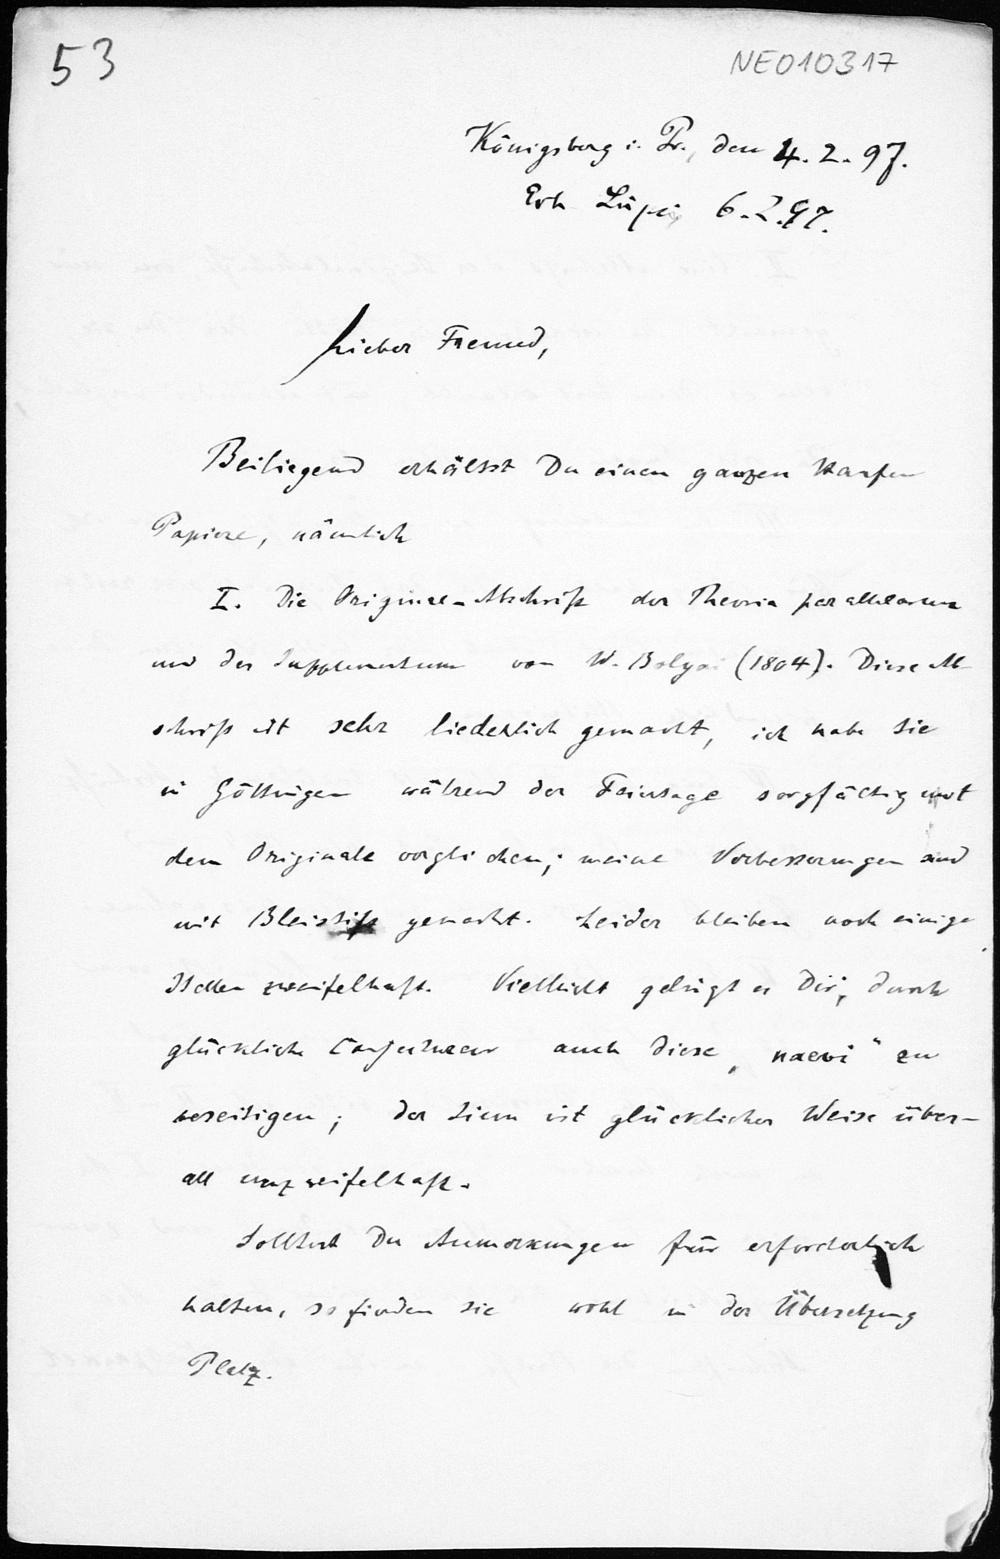 53
NE010317
Königsberg i. Pr., den 4. 2. 97.
Erh. Leipzig 6.2.97.
Lieber Freund,
Beiliegend erhältst Du einen ganzen Haufen
Papiere, nämlich
I. Die Original-Abschrift der Theoria parallelarum
und des Supplementum von W. Bolyai (1804). Diese Ab-
schrift ist sehr liederlich gemacht, ich habe sie
in Göttingen während der Feiertage sorgfältig mit
dem Originale verglichen; meine Verbesserungen sind
mit Bleistift gemacht. Leider bleiben noch einige
Stellen zweifelhaft. Vielleicht gelingt es Dir, durch
glückliche Conjecturen auch diese „naevi“ zu
beseitigen; der Sinn ist glücklicher Weise über-
all unzweifelhaft.
Solltest Du Anmerkungen für erforderlich
halten, so finden sie wohl in der Übersetzung
Platz.